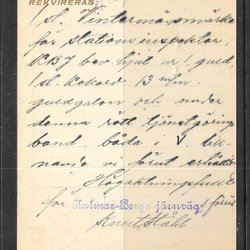 REKVIRERAS:
1 st. Vintermössmärke
för stationsinspektor
KBJ bev hjul nr 1 guld
1 st. kokard 13 m/m.
guldgalon och under
denna rött tjenstgöring
band, båda i
vi förut erhållit
Högaktningsfullt
för Kalmar-Berga järnväg
Knut Ståhl